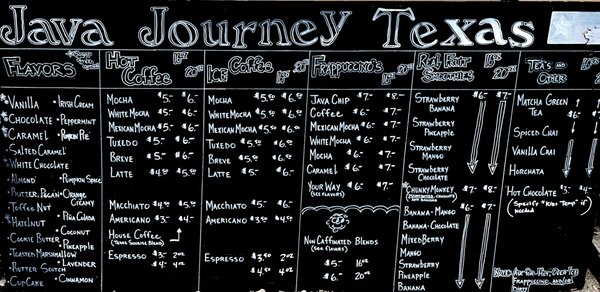 Java Journey Texas
Flavors
Vanilla • Irish Cream
Chocolate • Peppermint
Caramel • Pumpkin Pie
Salted Caramel
White Chocolate
Almond • Pumpkin Spice
Butter Pecan • Orange Creamy
Toffee Nut
Hazelnut • Piña Colada
• Coconut
Cookie Butter • Pineapple
Toasted Marshmallow
• Lavender
Butter Scotch
Cupcake • Cinnamon
Hot Coffee 16oz 20oz
Mocha $5.- $6.-
White Mocha $5.- $6.-
Mexican Mocha $5.- $6.-
Tuxedo $5.- $6.-
Breve $5.- $6.-
Latte $4.- $5.-
Macchiato $4.50 $5.-
Americano $3.- $4.-
House Coffee
(Texas Sunrise Blend)
Espresso $3.- 2oz
$4.- 4oz
Iced Coffee 16oz 20oz
Mocha $5.50 $6.50
White Mocha $5.50 $6.50
Mexican Mocha $5.50 $6.50
Tuxedo $5.50 $6.50
Breve $5.50 $6.50
Latte $5.- $6.-
Macchiato $5.- $6.-
Americano $3.50 $4.50
Espresso $3.50 2oz
$4.50 4oz
Frappuccino's 16oz 20oz
Java Chip $7.- $8.-
Coffee $6.- $7.-
Mexican Mocha $6.- $7.-
White Mocha $6.- $7.-
Mocha $6.- $7.-
Caramel $6.- $7.-
Your Way $6.- $7.-
(See Flavors)
Non Caffinated Blends
(See Flavors)
$5.- 16oz
$6.- 20oz
Real Fruit Smoothies 16oz 20oz
Strawberry Banana $6.- $7.-
Strawberry Pineapple
Strawberry Mango
Strawberry Chocolate
Chunky Monkey $7.- $8.-
Banana-Mango $6.- $7.-
Banana-Chocolate
Mixed Berry
Mango
Strawberry
Pineapple
Banana
Tea's and Other 16oz 20oz
Matcha Green Tea
Spiced Chai
Vanilla Chai
Horchata
Hot Chocolate $3.- $4.-
(Specify "Kids Temp" if needed